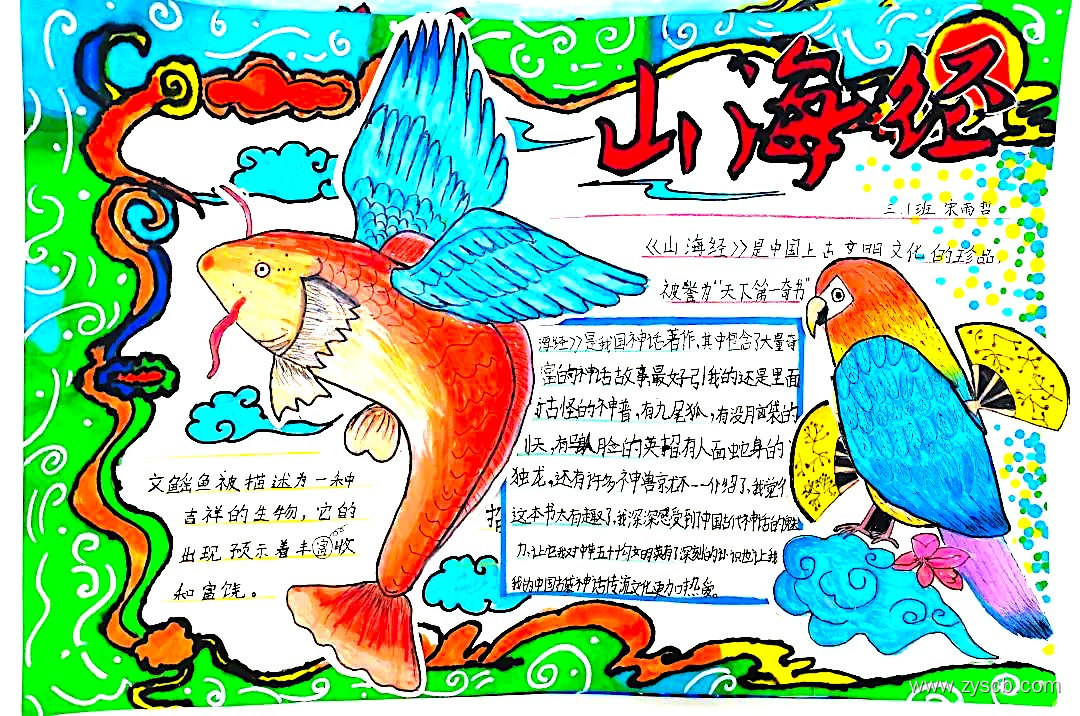 山海经
三.1班 宋雨哲
《山海经》是中国上古文明文化的珍品,
被誉为“天下第一奇书”
海经》是我国神话著作,其中包含了大量奇
富的神话故事最好引我的还是里面
古怪的神兽,有九尾狐,有没月
天,有 脸的英招有人面蛇身的
独龙,还有许多神兽京尤不一一介绍了,我觉个
这本书太有趣了,我深深感受到了中国古代神话的魅
力,让它我对中华五千 文明英有了深刻的 识也让我
我的中国古 神话传流文化更加 热爱。
招
文鳐鱼被描述为一种
吉祥的生物,它的
出现预示着丰富收
和富饶。
www.zyscb.com